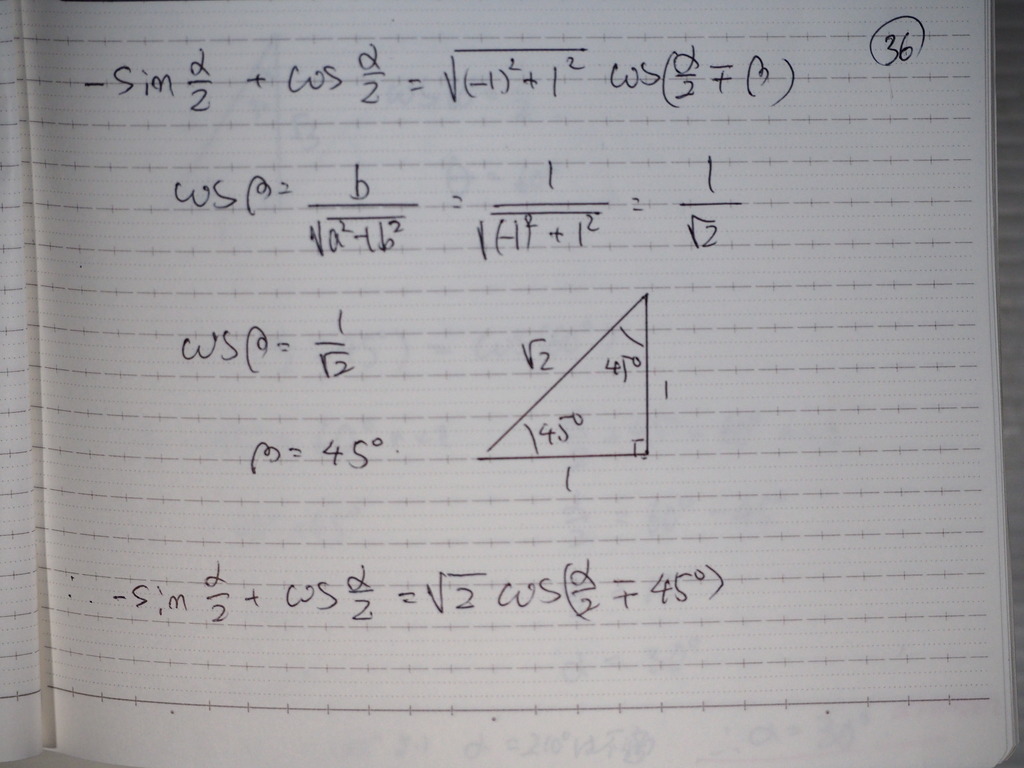 36
-sin α/2 + cos α/2 = √((-1)²+1²) cos(α/2 ∓ β)
cos β = b/√(a²+b²) = 1/√((-1)²+1²) = 1/√2
cos β = 1/√2
√2
45°
1
β = 45°.
45°
1
∴ -sin α/2 + cos α/2 = √2 cos(α/2 ∓ 45°)